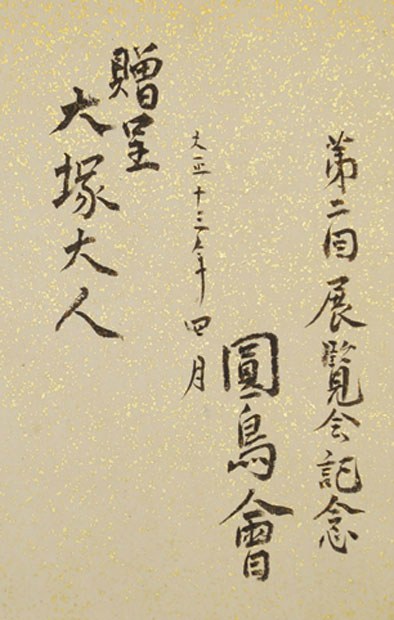 第二回展覧会記念
圓鳥會
大正十三年四月
贈呈
大塚大人